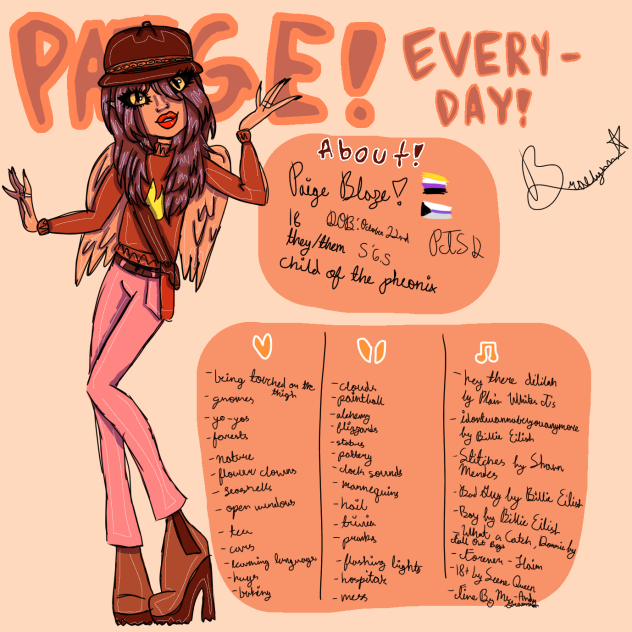 PAIGE!
EVERY-
DAY!
About!
Paige Blaze!
18 DOB: October 22nd
they/them 5'6.5 PTSD
child of the pheonix
-being touched on the
thigh
-gnomes
-yo-yos
-forests
-nature
-flower clowns
-seashells
-open windows
-tea
-caves
-learning language
-hugs
-baking
-clouds
-paintball
-alchemy
-blizzards
-statues
-pottery
-clock sounds
-mannequins
-hail
-trivia
-pranks
-flashing lights
-hospitals
-mess
-hey there delilah
by Plain White T's
-idontwannabeyouanymore
by Billie Eilish
-Stitches by Shawn
Mendes
-Bad Guy by Billie Eilish
-Boy by Billie Eilish
-What a Catch, Donnie by
Fall Out Boy
-Forever - Haim
-18+ by Scene Queen
-Fine By Me - Andy
Grammer